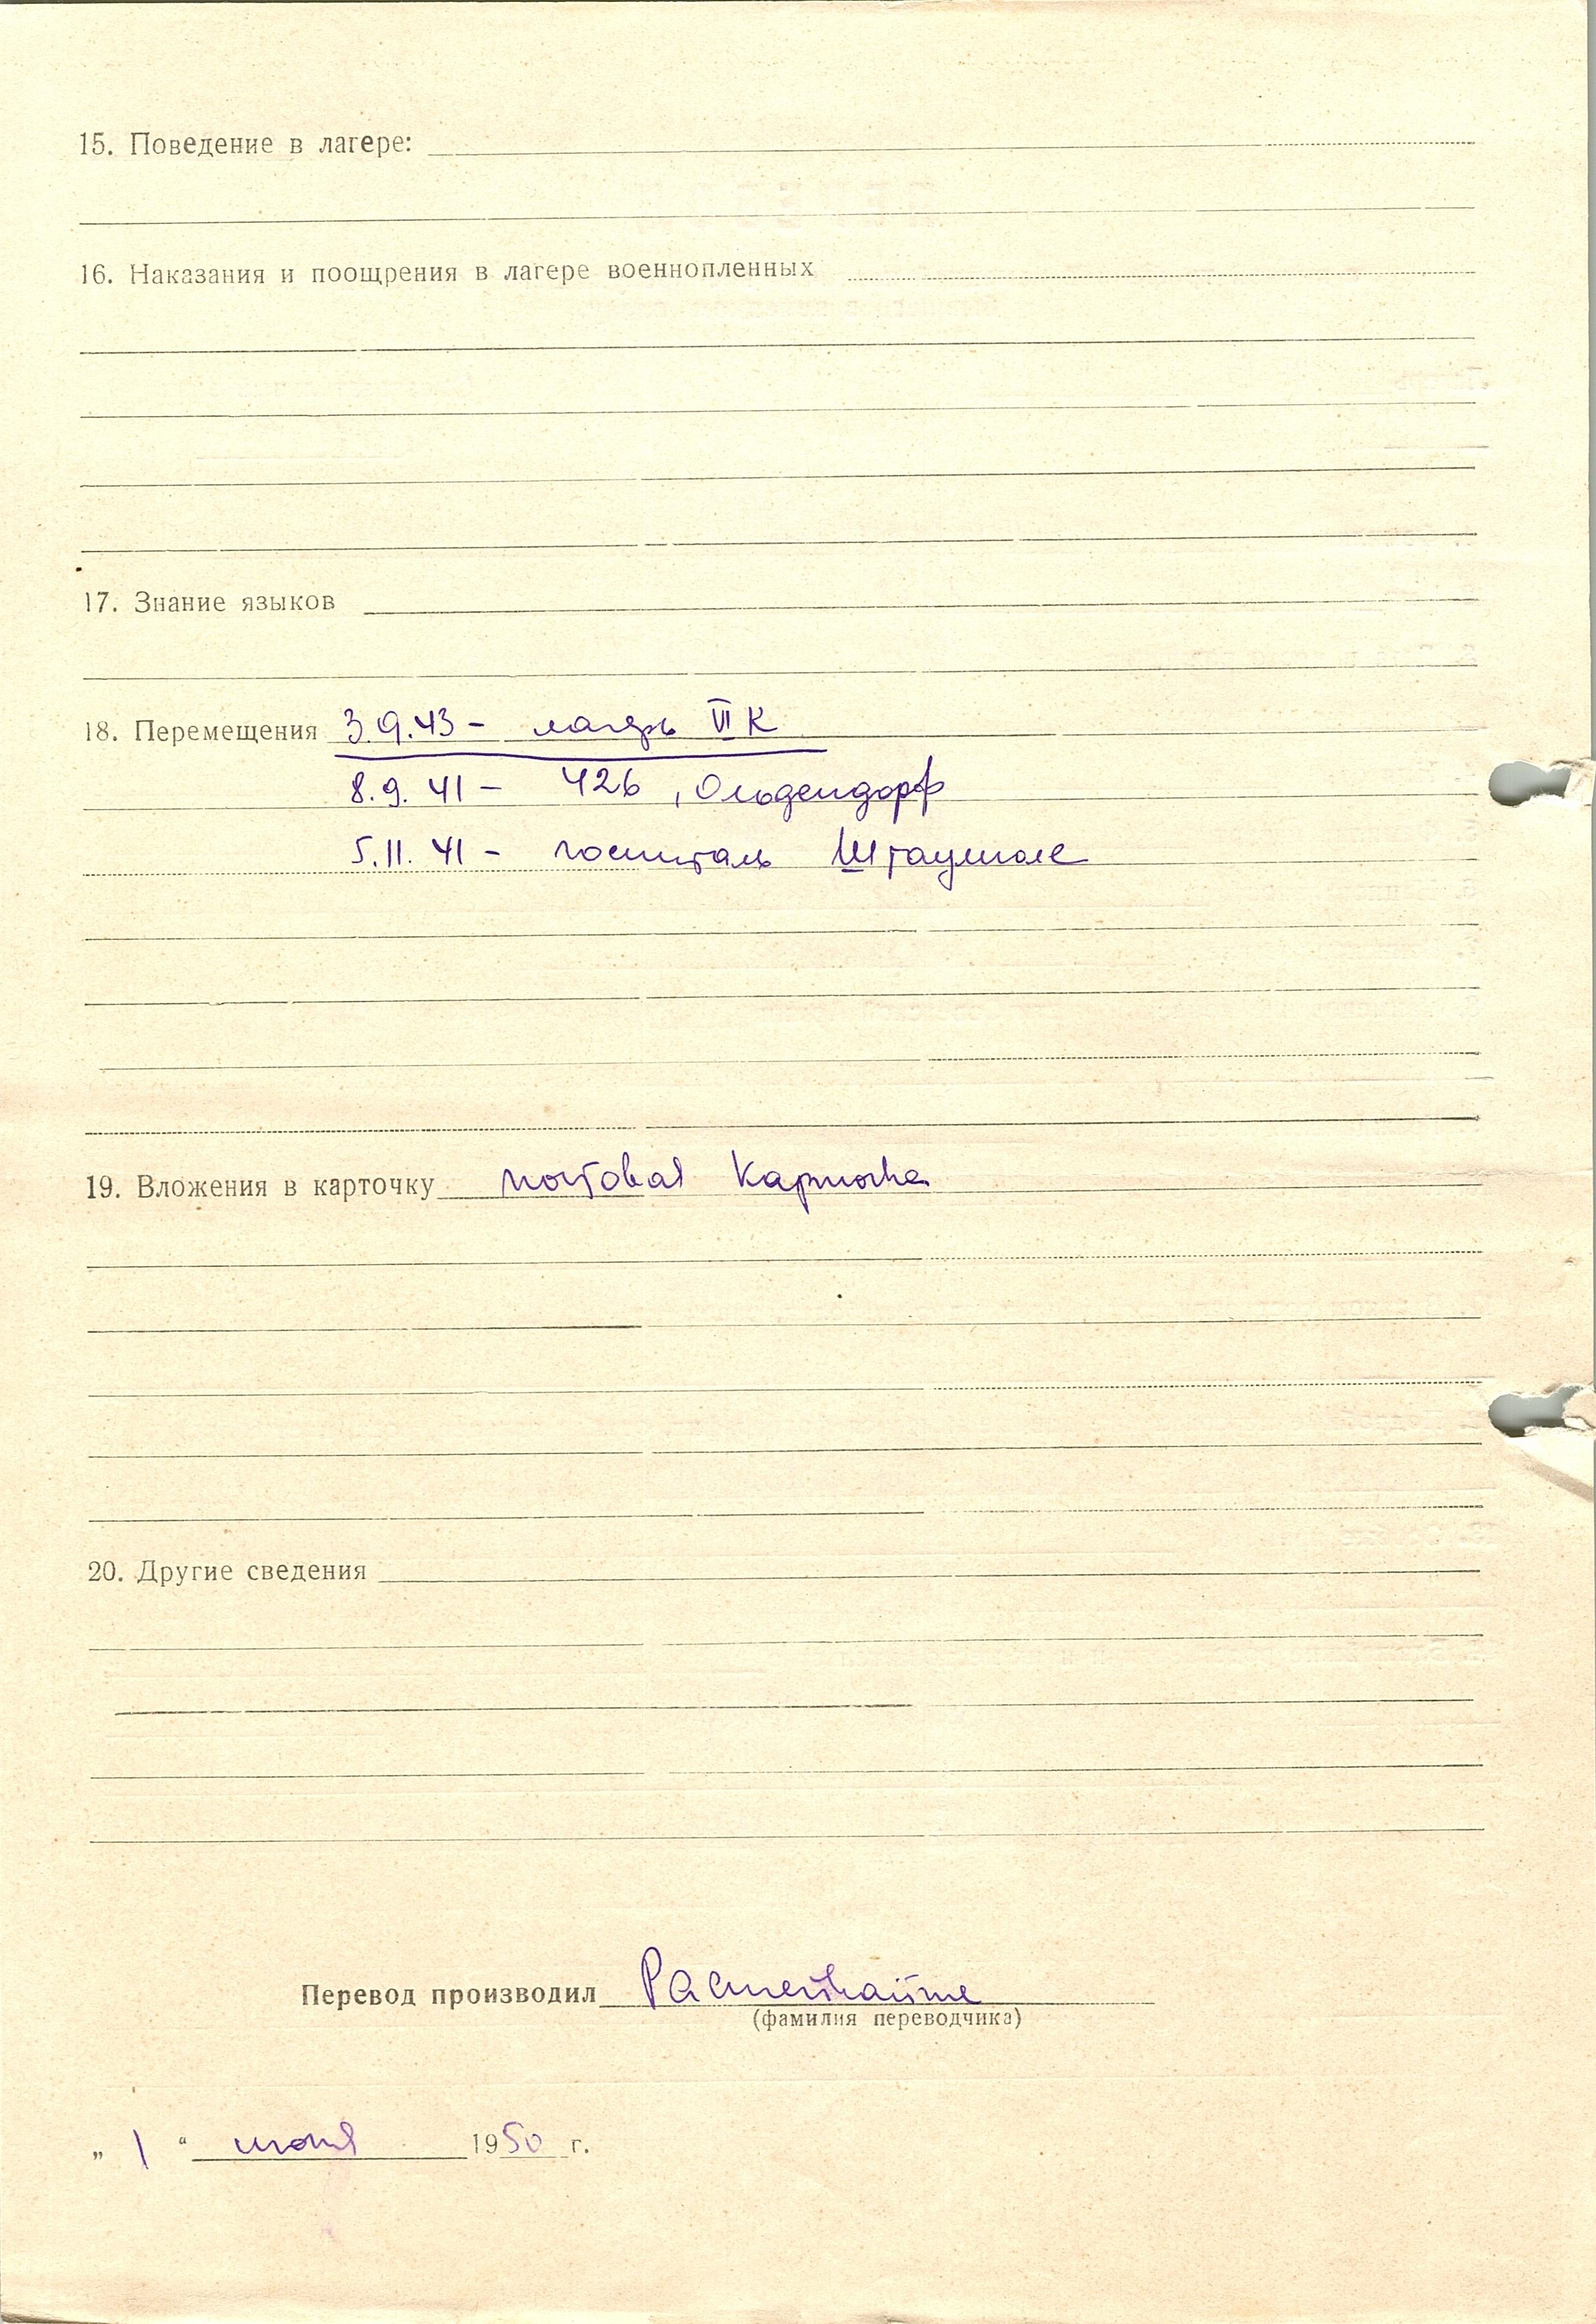 15. Поведение в лагере:
16. Наказания и поощрения в лагере военнопленных
17. Знание языков
18. Перемещения 3.9.43 - лагерь VI К
8.9.41 - 426, Ольдендорф
5.11.41 - госпиталь Штаумюле
19. Вложения в карточку почтовая карточка
20. Другие сведения
Перевод производил
(фамилия переводчика)
„ 1 “ июня 1950 г.